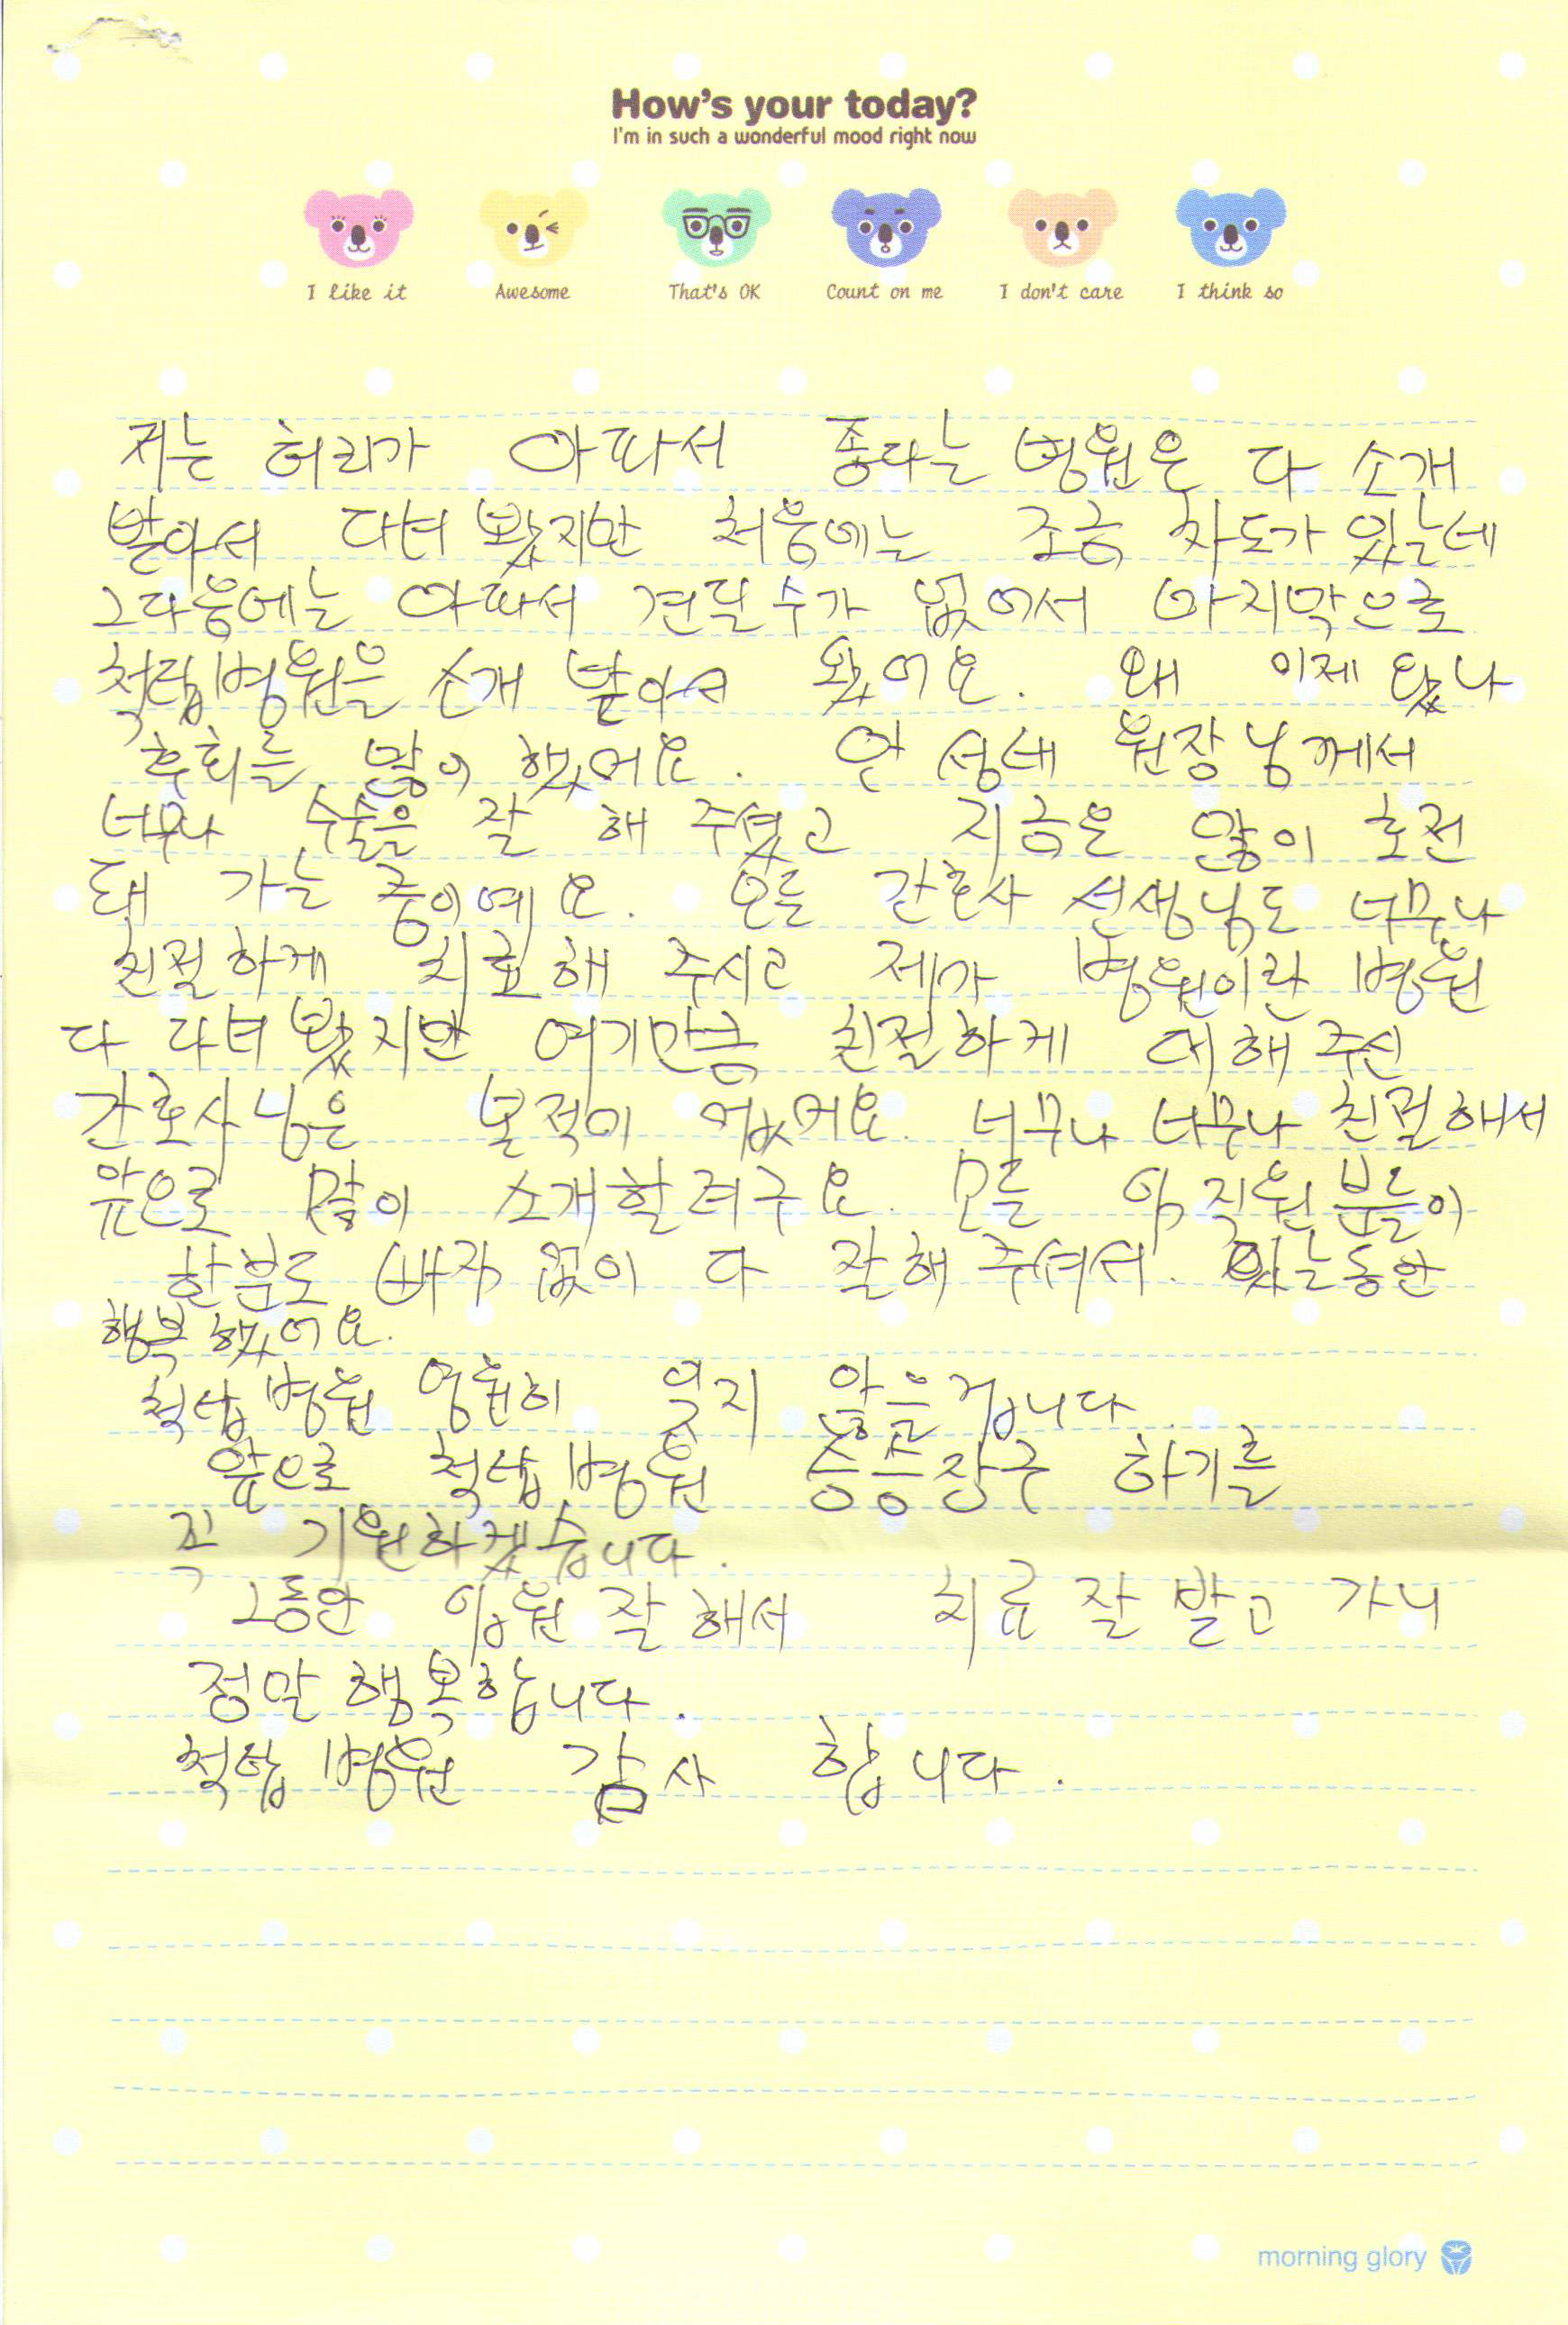 How's your today?
I'm in such a wonderful mood right now
I like it Awesome That's OK Count on me I don't care I think so
저는 허리가 아파서 좋다는 병원은 다 소개
받아서 다녀 봤지만 처음에는 조금 차도가 있는데
그다음에는 아파서 견딜 수가 없어서 마지막으로
척탑병원을 소개 받아서 왔어요. 왜 이제 왔나
후회를 많이 했어요. 안 성데 원장님께서
너무나 수술을 잘 해 주셨고 지금은 많이 호전
돼 가는 중이예요. 모든 간호사 선생님도 너무나
친절하게 치료해 주시고 제가 병원이란 병원
다 다녀 봤지만 여기만큼 친절하게 대해 주신
간호사님은 본적이 없어요. 너무나 너무나 친절해서
앞으로 많이 소개할려구요. 모든 임직원분들이
한분도 빠짐 없이 다 잘해 주셔서. 있는동안
행복했어요.
척탑병원 영원히 잊지 않을겁니다.
앞으로 척탑병원 승승장구 하기를
꼭 기원하겠습니다.
그동안 입원 잘 해서 치료 잘 받고 가니
정말 행복합니다.
척탑병원 감사 합니다.
morning glory